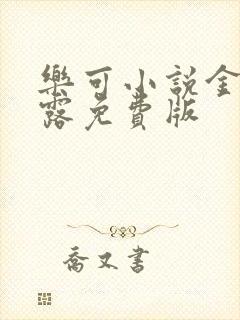 樂可小說金
露免費版
喬又書